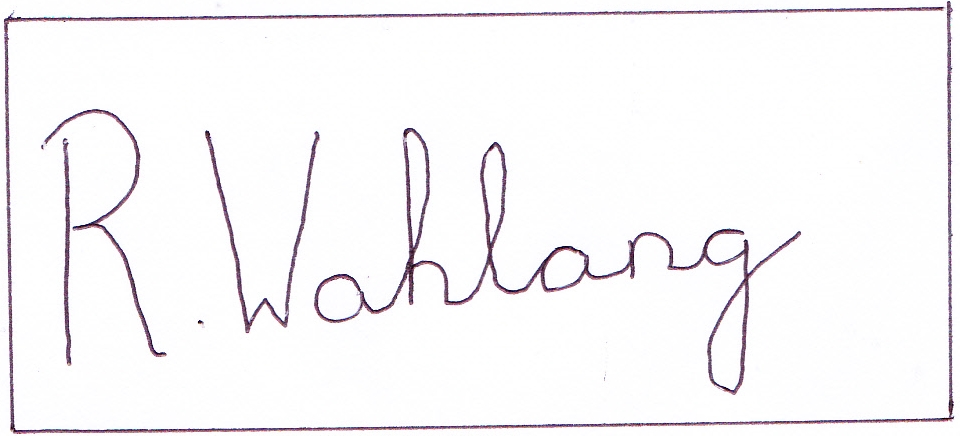 R. Wahlang